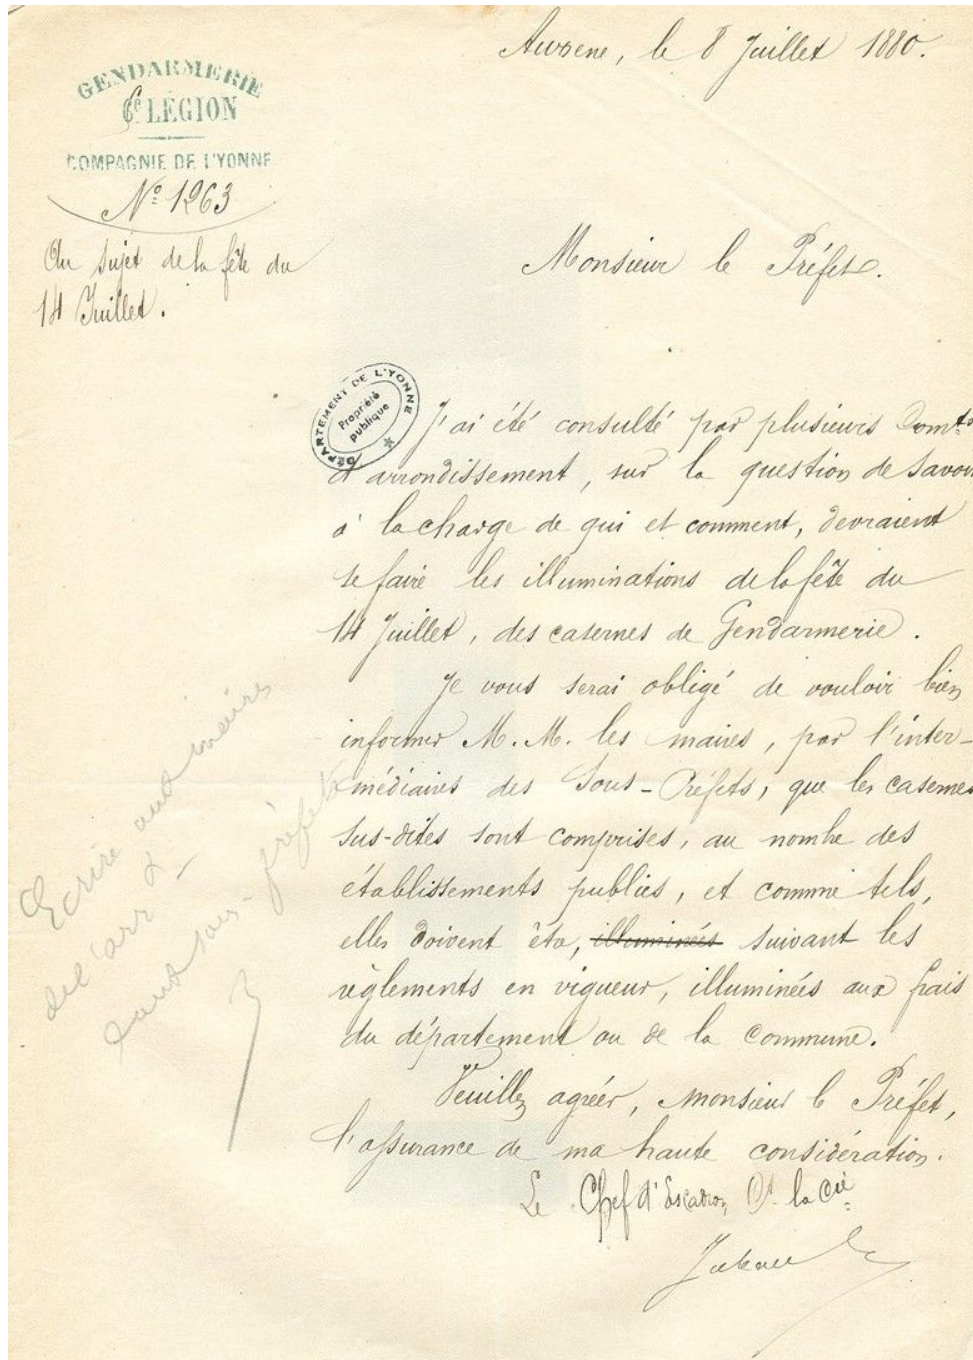 Auxerre, le 8 Juillet 1880.
GENDARMERIE
6e LÉGION
COMPAGNIE DE L'YONNE
N° 1263
Au sujet de la fête du
14 Juillet.
Monsieur le Préfet.
DÉPARTEMENT DE L'YONNE
Propriété
publique
J'ai été consulté par plusieurs Comts
d'arrondissement, sur la question de savoir
à la charge de qui et comment, devraient
se faire les illuminations de la fête du
14 Juillet, des casernes de Gendarmerie.
Je vous serai obligé de vouloir bien
informer M.M. les maires, par l'inter-
médiaires des Sous-Préfets, que les casernes
sus-dites sont comprises, au nombre des
établissements publics, et comme tels,
elles doivent être, illuminées suivant les
règlements en vigueur, illuminées aux frais
du département ou de la commune.
Veuillez agréer, Monsieur le Préfet,
l'assurance de ma haute considération.
Le Chef d'Escadron, Ct la Cie
Ecrire aux maires
de l'arr &
aux sous-préfets